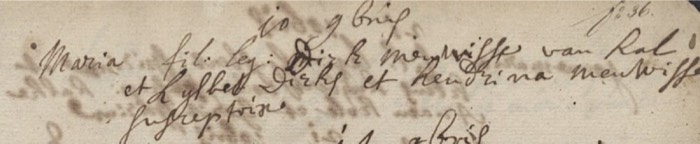 10 9bris
Maria fil: leg: Dirk meuwisse van hal
et Lysbet Dirks et hendrina meuwisse
susceptrix
9bris